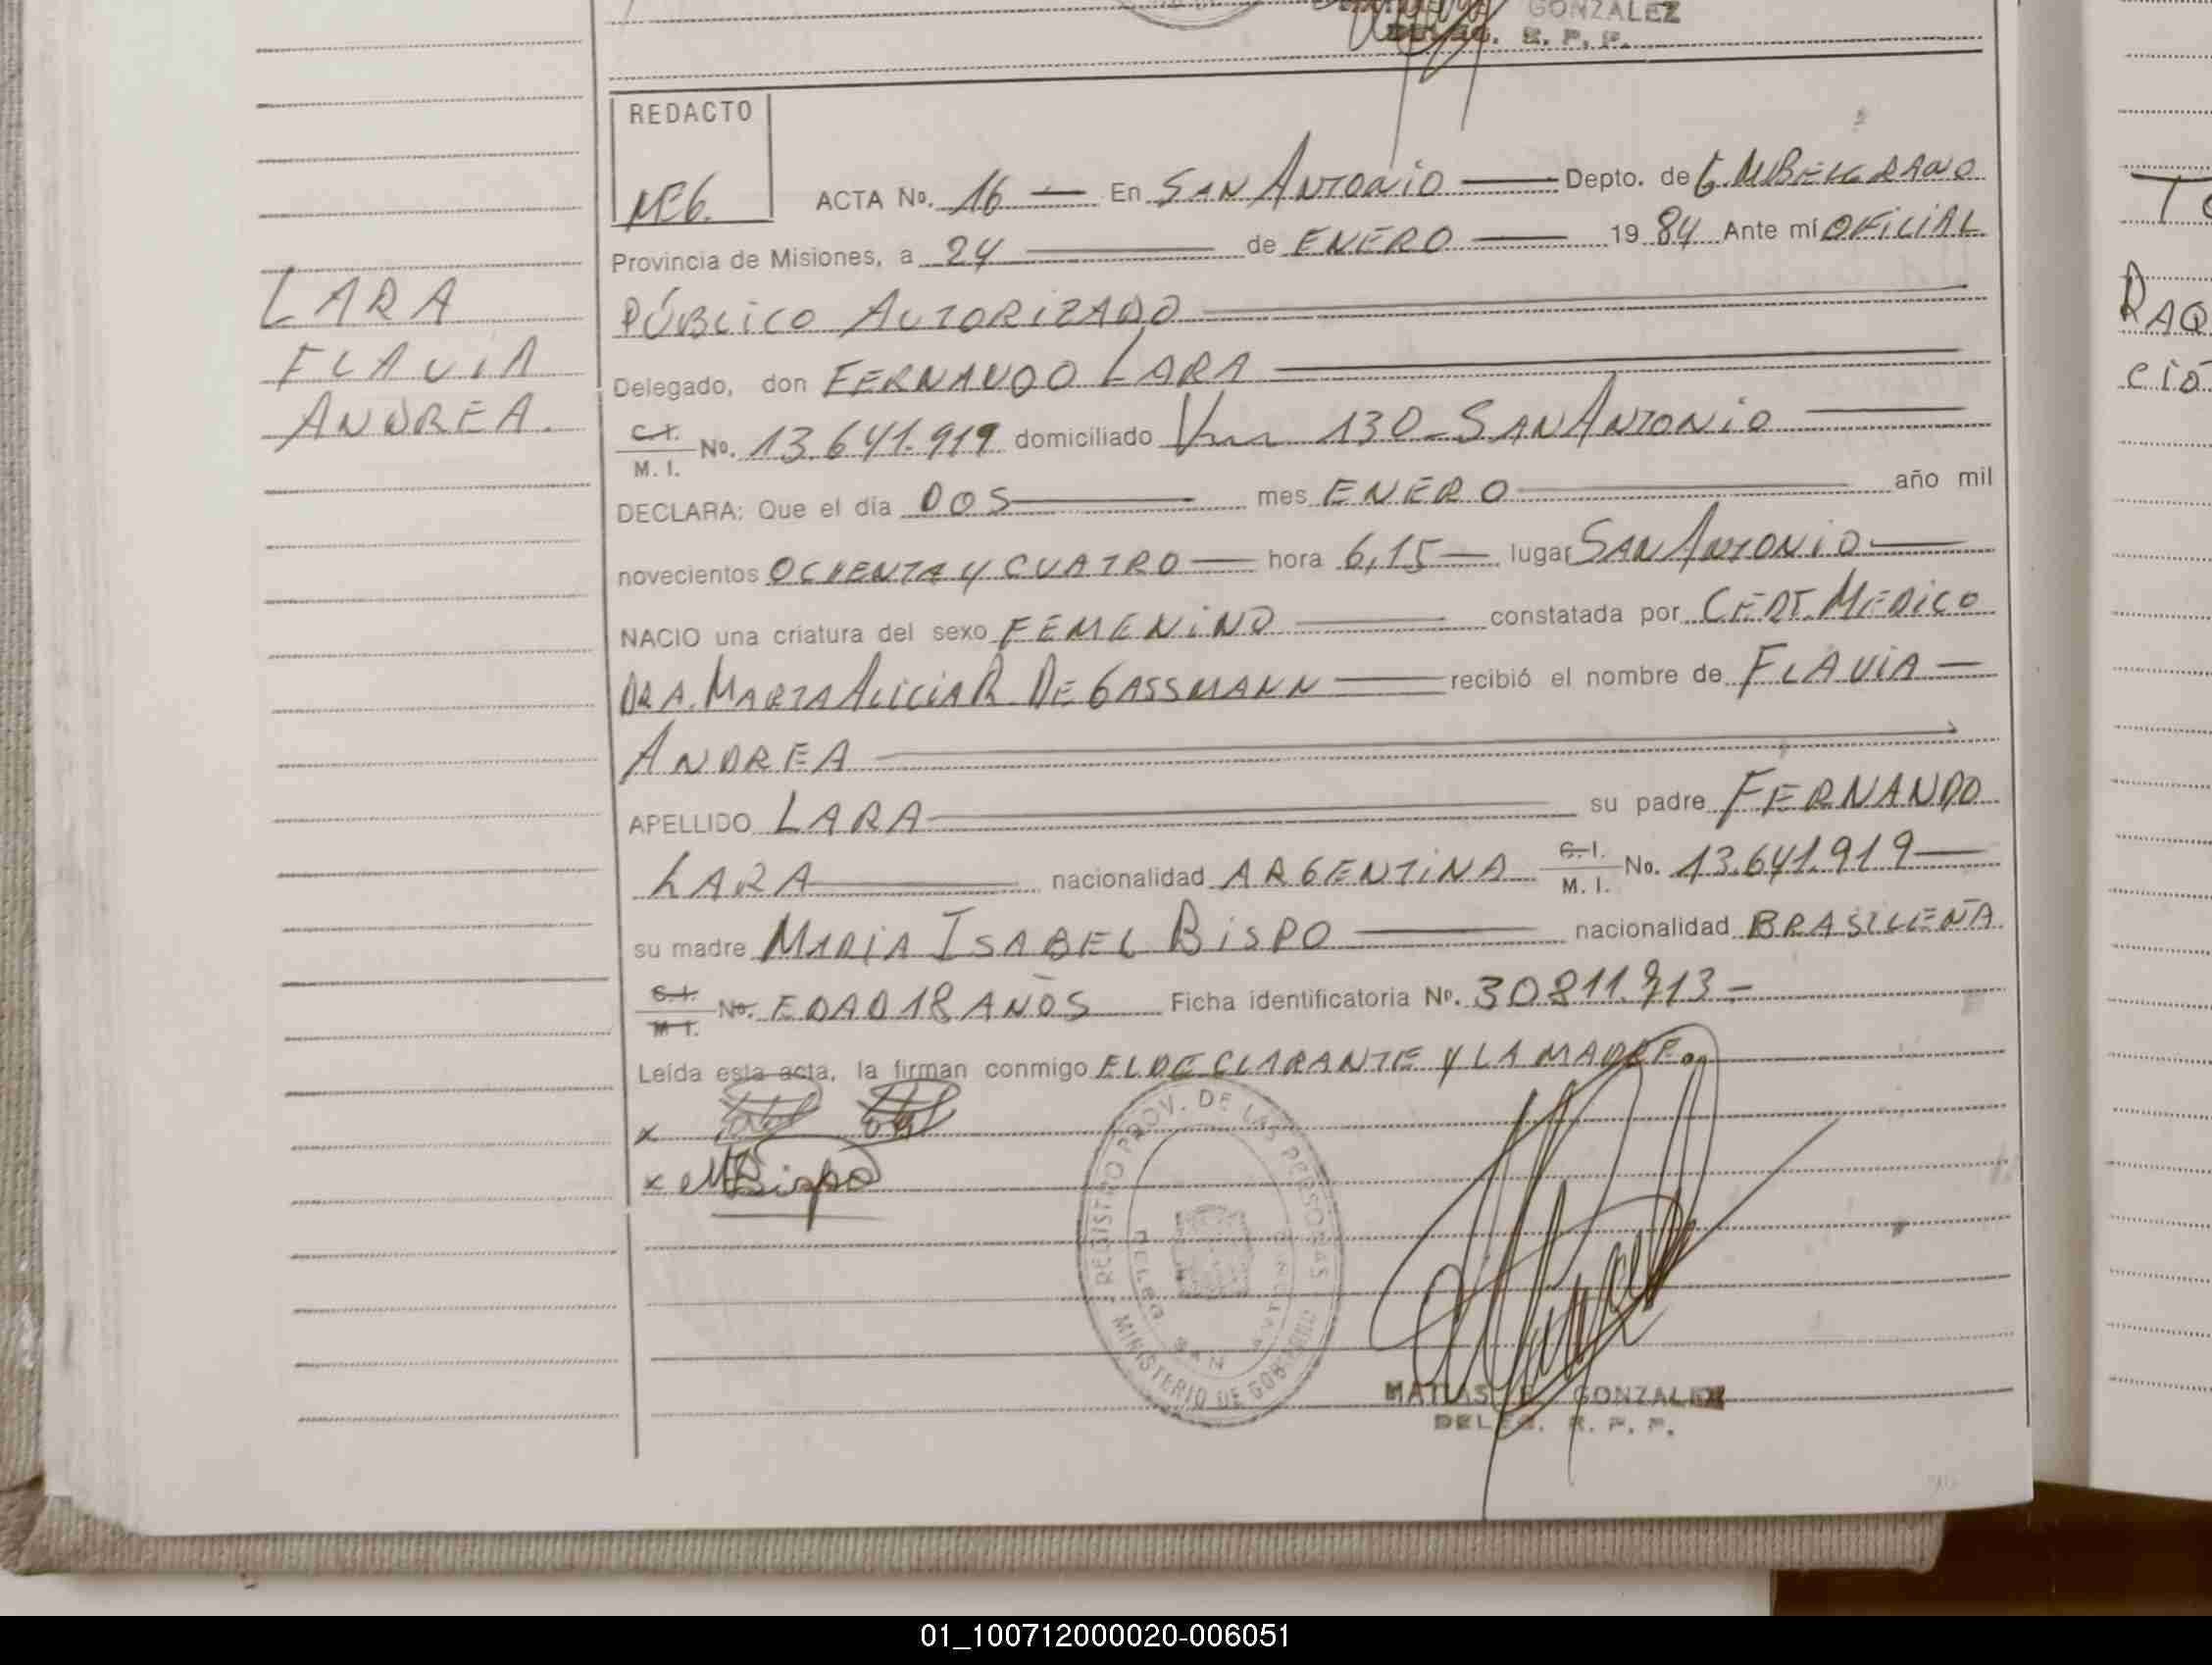 GONZALEZ
DELEG. R. P. P.
REDACTO
MEG.
ACTA No. 16 — En SAN ANTONIO — Depto. de G. M. BELGRANO
Provincia de Misiones, a 24 — de ENERO — 19 84 Ante mí OFICIAL
PÚBLICO AUTORIZADO
Delegado, don FERNANDO LARA
C.I. / M. I. No. 13.641.919 domiciliado 130 - SAN ANTONIO
DECLARA: Que el día DOS — mes ENERO — año mil
novecientos OCHENTA Y CUATRO — hora 6,15 — lugar SAN ANTONIO —
NACIO una criatura del sexo FEMENINO — constatada por CERT. MEDICO
DRA. MARTA ALICIA R. DE GASSMANN — recibió el nombre de FLAVIA —
ANDREA
APELLIDO LARA — su padre FERNANDO
LARA — nacionalidad ARGENTINA C.I. / M. I. No. 13.641.919 —
su madre MARIA ISABEL BISPO — nacionalidad BRASILEÑA
C.I. / M I. No. EDAD 18 AÑOS Ficha identificatoria Nº. 30811.713 -
Leída esta acta, la firman conmigo EL DECLARANTE Y LA MADRE
x
x M Bispo
REGISTRO PROV. DE LAS PERSONAS
MINISTERIO DE GOBIERNO
DELEG. SAN ANTONIO
MATIAS GONZALEZ
DELEG. R. P. P.
LARA
FLAVIA
ANDREA.
RAQ
01_100712000020-006051